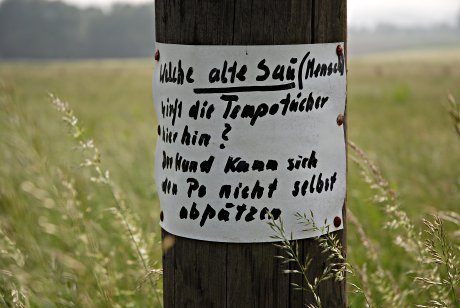 Welche alte Sau (Mensch)
wirft die Tempotücher
hier hin?
Der Hund kann sich
den Po nicht selbst
abputzen